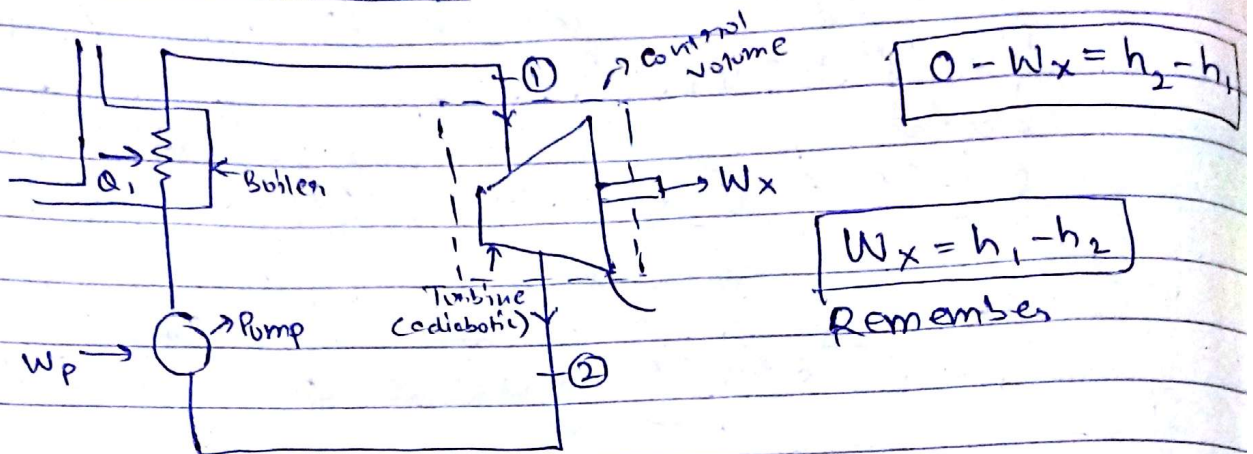 ①
control
volume
0 - Wx = h₂ - h₁
Q₁
Boiler
Wx
Wx = h₁ - h₂
Remember
Turbine
(adiabatic)
Pump
Wp
②